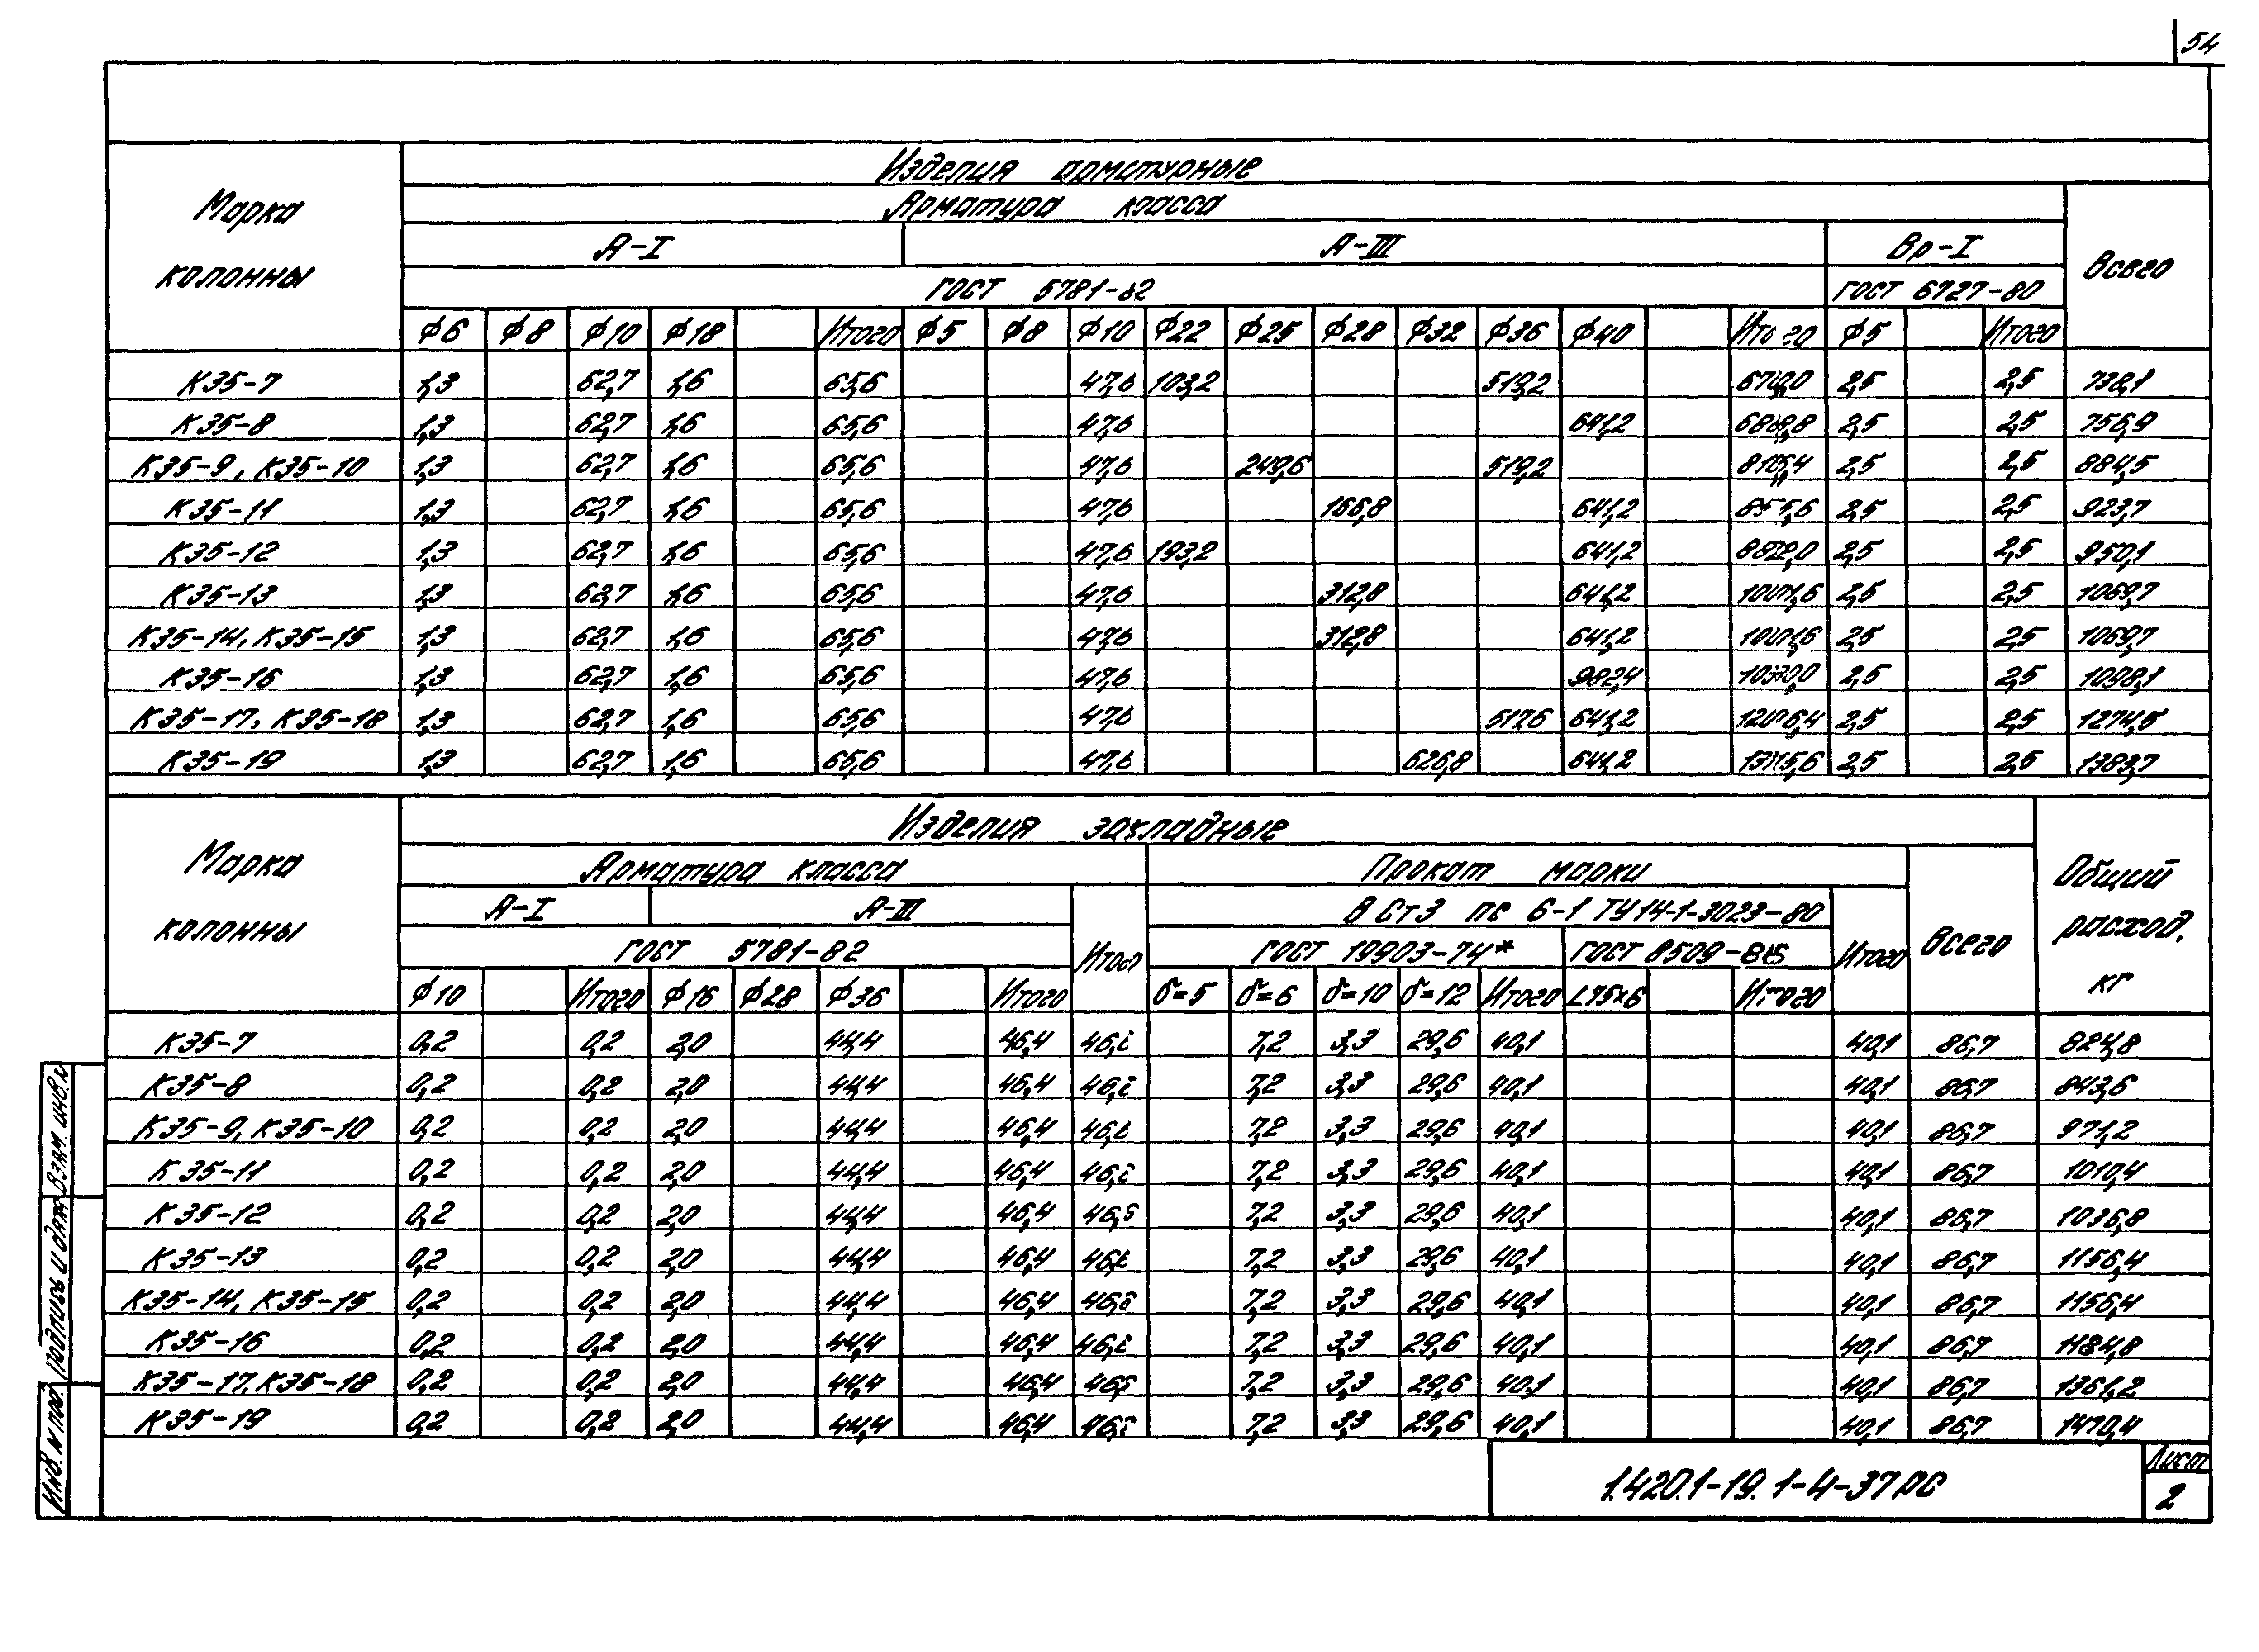 54
Изделия арматурные
Марка колонны
Арматура класса
Всего
А-I А-III Вр-I
ГОСТ 5781-82 ГОСТ 6727-80
ф6 ф8 ф10 ф18 Итого ф5 ф8 ф10 ф22 ф25 ф28 ф32 ф36 ф40 Итого ф5 Итого
К35-7 1,3 62,7 1,6 65,6 47,6 103,2 519,2 670,0 2,5 2,5 738,1
К35-8 1,3 62,7 1,6 65,6 47,6 641,2 688,8 2,5 2,5 756,9
К35-9, К35-10 1,3 62,7 1,6 65,6 47,6 249,6 519,2 816,4 2,5 2,5 884,5
К35-11 1,3 62,7 1,6 65,6 47,6 166,8 641,2 855,6 2,5 2,5 923,7
К35-12 1,3 62,7 1,6 65,6 47,6 193,2 641,2 882,0 2,5 2,5 950,1
К35-13 1,3 62,7 1,6 65,6 47,6 312,8 641,2 1001,6 2,5 2,5 1069,7
К35-14, К35-15 1,3 62,7 1,6 65,6 47,6 312,8 641,2 1001,6 2,5 2,5 1069,7
К35-16 1,3 62,7 1,6 65,6 47,6 982,4 1030,0 2,5 2,5 1098,1
К35-17, К35-18 1,3 62,7 1,6 65,6 47,6 517,6 641,2 1206,4 2,5 2,5 1274,5
К35-19 1,3 62,7 1,6 65,6 47,6 626,8 641,2 1315,6 2,5 2,5 1383,7
Изделия закладные
Марка колонны
Арматура класса Прокат марки
Всего
Общий расход, кг
А-I А-III Итого ВСт3 пс 6-1 ТУ14-1-3023-80 Итого
ГОСТ 5781-82 ГОСТ 19903-74* ГОСТ 8509-86
ф10 Итого ф16 ф28 ф36 Итого δ=5 δ=6 δ=10 δ=12 Итого L75×6 Итого
К35-7 0,2 0,2 2,0 44,4 46,4 46,6 7,2 3,3 29,6 40,1 40,1 86,7 824,8
К35-8 0,2 0,2 2,0 44,4 46,4 46,6 7,2 3,3 29,6 40,1 40,1 86,7 843,6
К35-9, К35-10 0,2 0,2 2,0 44,4 46,4 46,6 7,2 3,3 29,6 40,1 40,1 86,7 971,2
К35-11 0,2 0,2 2,0 44,4 46,4 46,6 7,2 3,3 29,6 40,1 40,1 86,7 1010,4
К35-12 0,2 0,2 2,0 44,4 46,4 46,6 7,2 3,3 29,6 40,1 40,1 86,7 1036,8
К35-13 0,2 0,2 2,0 44,4 46,4 46,6 7,2 3,3 29,6 40,1 40,1 86,7 1156,4
К35-14, К35-15 0,2 0,2 2,0 44,4 46,4 46,6 7,2 3,3 29,6 40,1 40,1 86,7 1156,4
К35-16 0,2 0,2 2,0 44,4 46,4 46,6 7,2 3,3 29,6 40,1 40,1 86,7 1184,8
К35-17, К35-18 0,2 0,2 2,0 44,4 46,4 46,6 7,2 3,3 29,6 40,1 40,1 86,7 1361,2
К35-19 0,2 0,2 2,0 44,4 46,4 46,6 7,2 3,3 29,6 40,1 40,1 86,7 1470,4
Инв. N под. Подпись и дата Взам. инв. N
1.420.1-19. 1-4-37РС
Лист
2